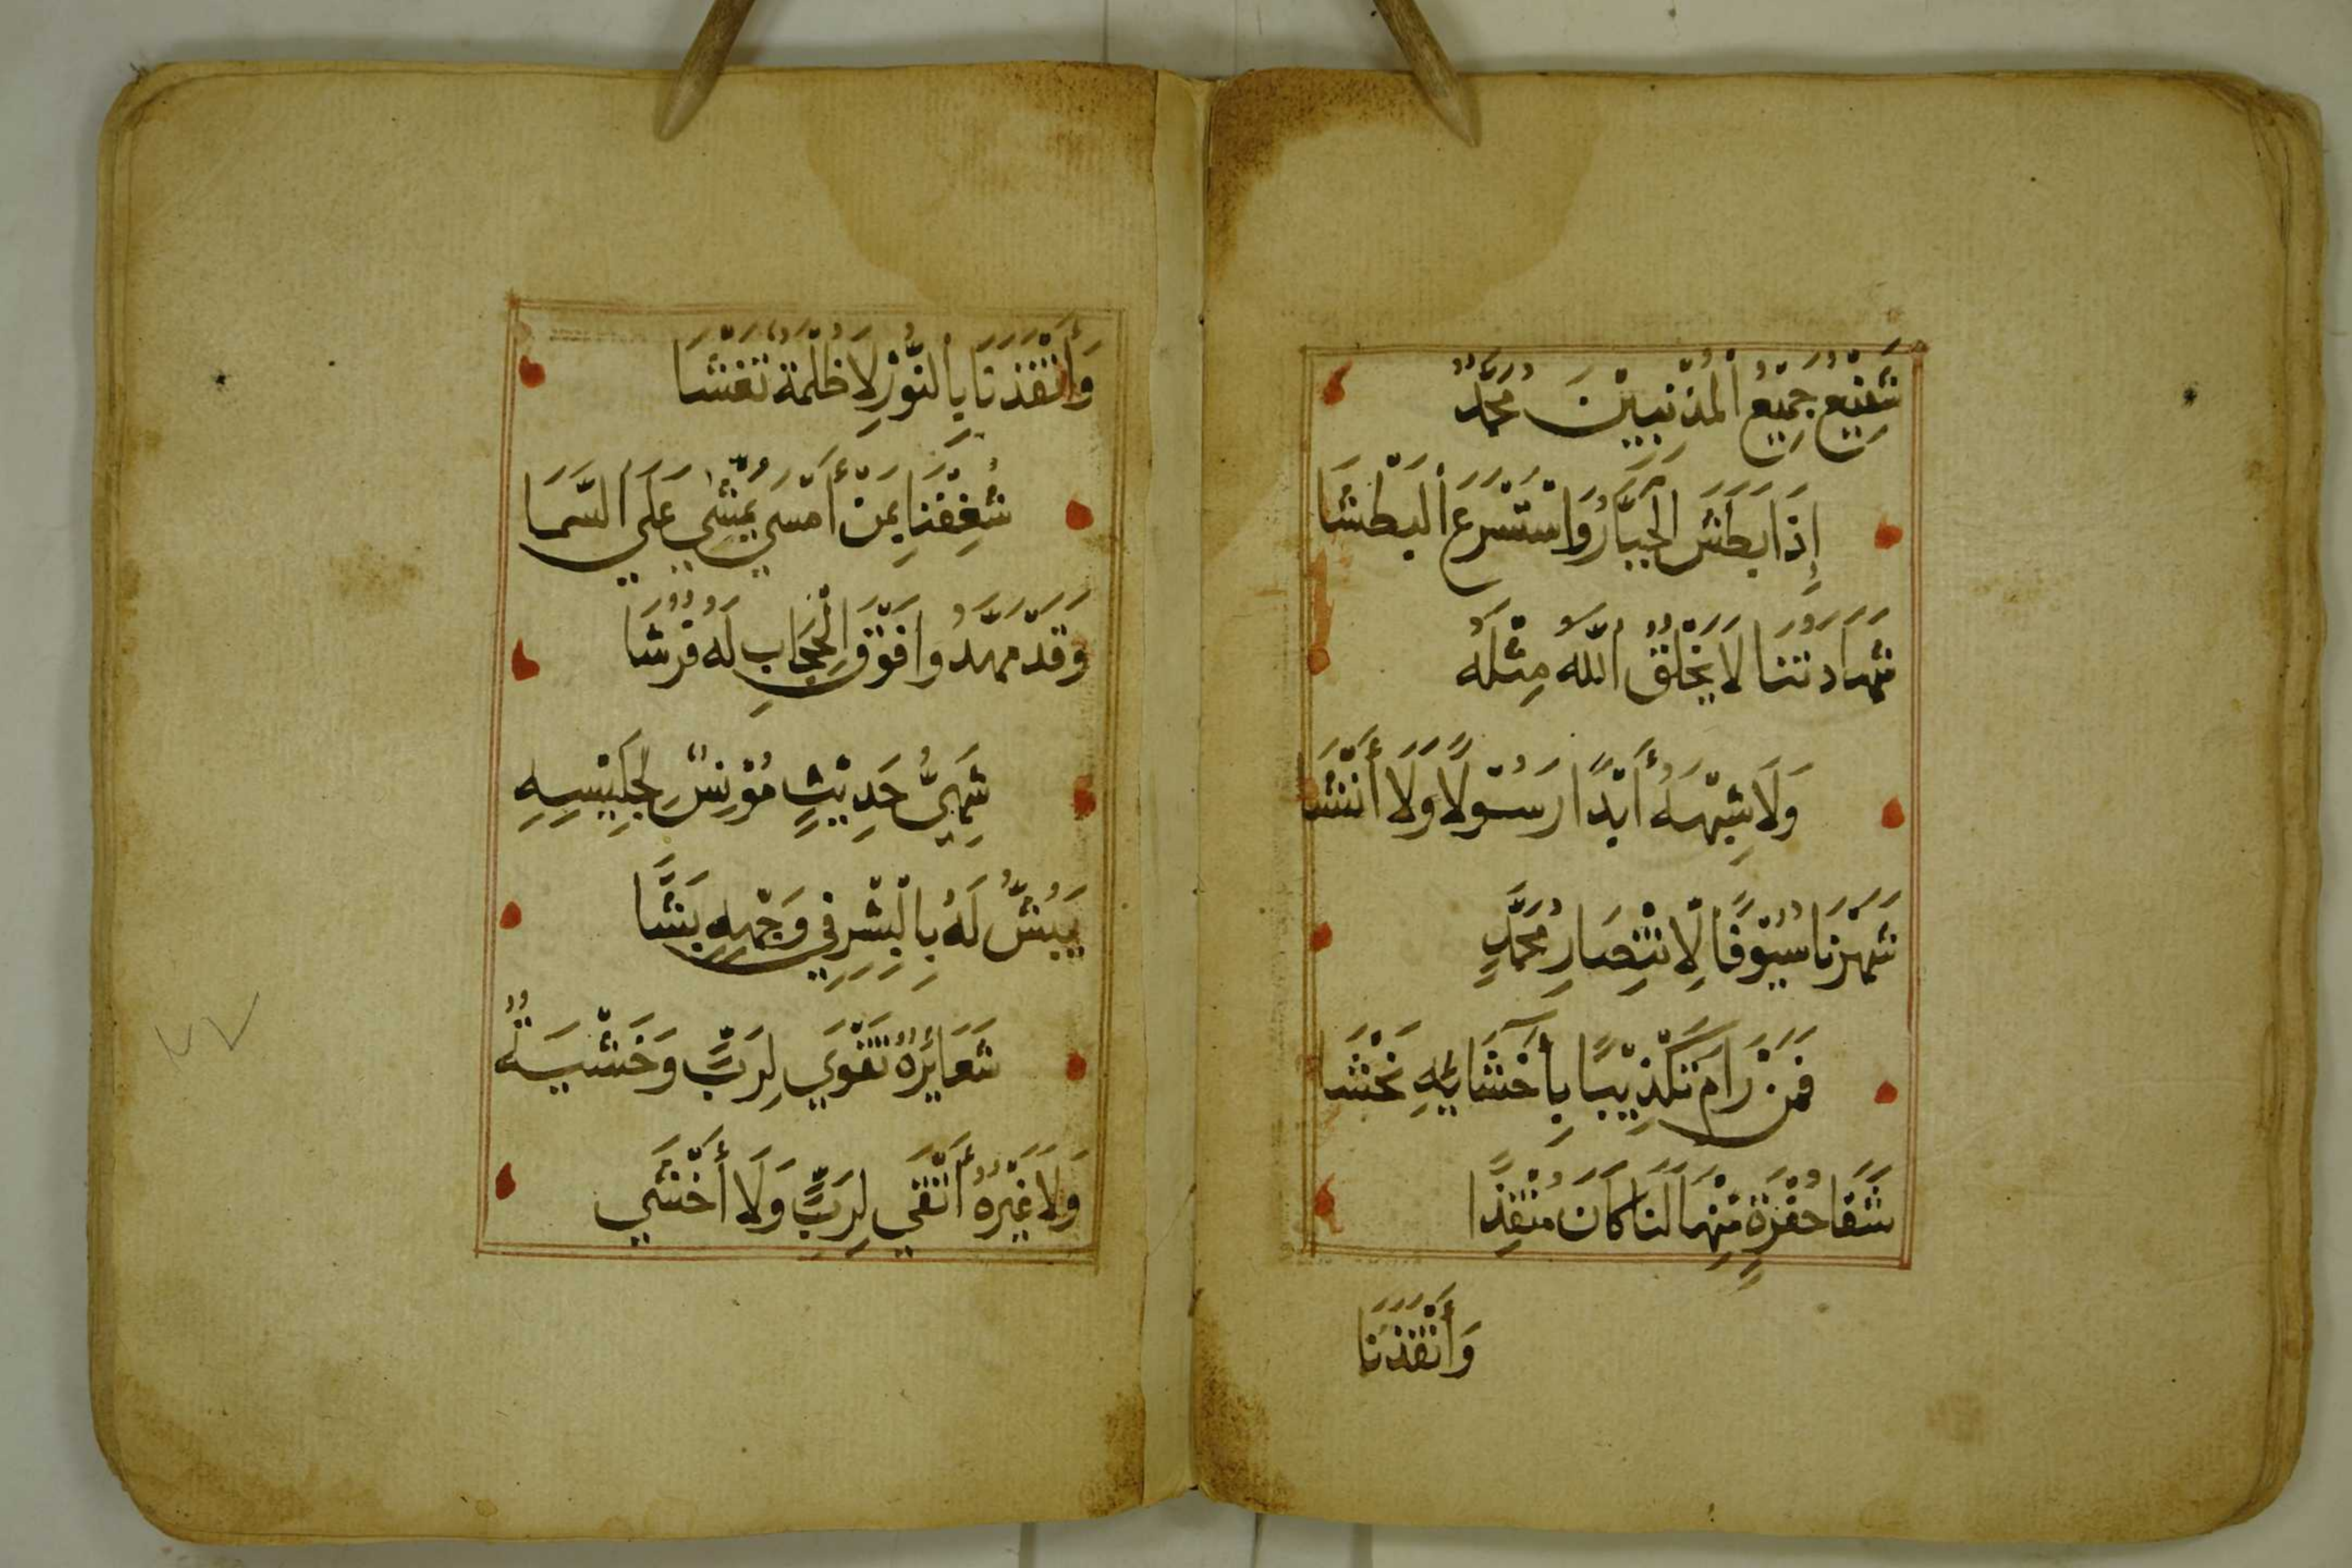 شَفِيْعُ جَمِيْعِ الْمُذْنِبِيْنَ مُحَمَّدٌ
إِذَا بَطَشَ الْجَبَّارُ وَاسْتَسْرَعَ الْبَطْشَا
شَهَادَتُنَا لَا يَخْلُقُ اللّٰهُ مِثْلَهُ
وَلَا شِبْهَهُ أَبَدًا رَسُوْلًا وَلَا أَنْشَا
شَهَرْنَا سُيُوْفًا لِانْتِصَارِ مُحَمَّدٍ
فَمَنْ رَامَ تَكْذِيْبًا بِأَحْشَائِهِ تُحْشَا
شَفَا حُفْرَةٍ مِنْهَا لَنَا كَانَ مُنْقِذًا
وَأَنْقَذَنَا
وَأَنْقَذَنَا بِالنُّوْرِ لَا ظُلْمَةً تَغْشَا
شُغِفْنَا بِمَنْ أَمْسَي يُمَشّٰي عَلَي السَّمَا
وَقَدْ مَهَّدُوا فَوْقَ الْحِجَابِ لَهُ فُرُشَا
شَهِيُّ حَدِيْثٍ مُؤْنِسٌ لِجَلِيْسِهِ
يَبُشُّ لَهُ بِالْبِشْرِ فِي وَجْهِهِ بَشَّا
شَعَائِرُهُ تَقْوَي لِرَبٍّ وَخَشْيَةٌ
وَلَا غَيْرُهُ أَتْقَي لِرَبٍّ وَلَا أَخْشَي
٧٧